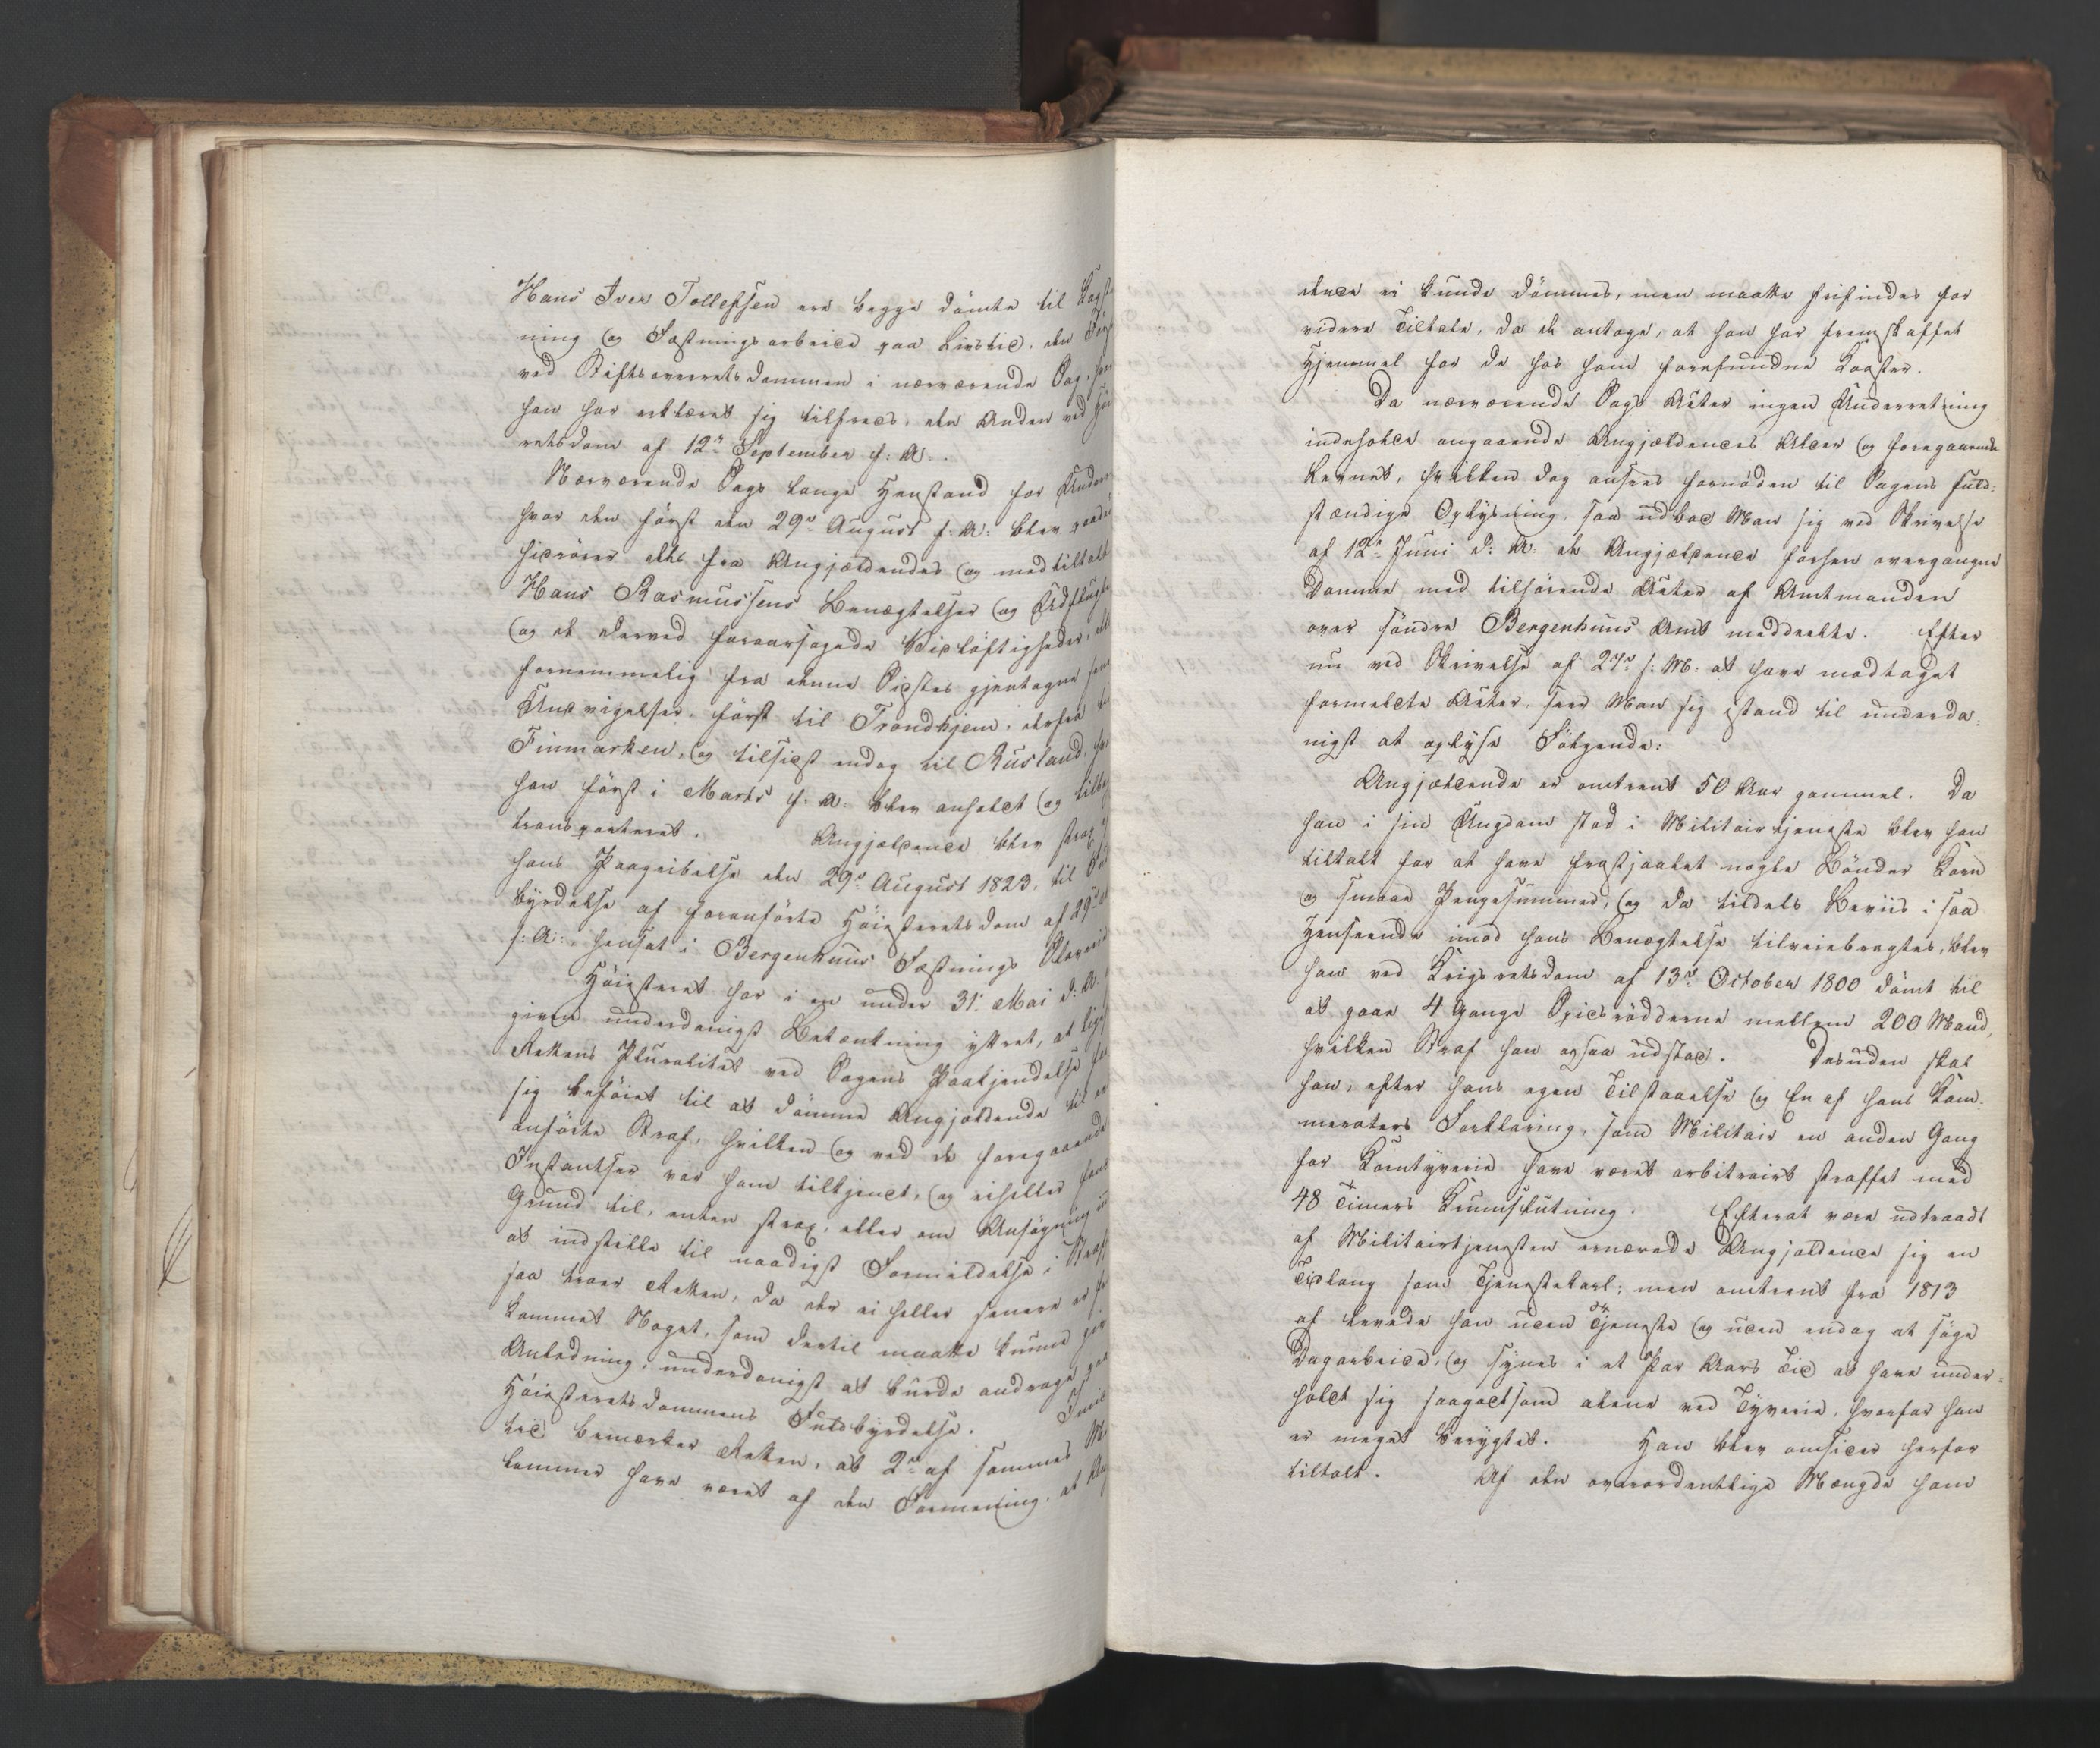 Hans Iver Tollefsen ere begge dömte til
ning og Fæstningsarbeide paa Livstid, den
ved Stiftsoverretsdommen i nærværende Sag,
han har erklæret sig tilfreds, den Anden ved
retsdom af 12te September f: A:.
Nærværende Sags lange Henstand for
hvor den först den 29de August f: A: blev
hidrörer dels fra Angjældendes og medtiltalte
Hans Rasmussens Benægtelser og Udflugter
og de derved foraarsagede Vidlöftigheder,
fornemmelig fra denne Sidstes gjentagne
Undvigelser, först til Trondhjem, derfra
Finmarken, og tilsidst endog til Rusland,
han först i Marts f: A: blev anholdt og
transporteret. Angjældende blev strax
hans Paagribelse den 29de August 1823, til
byrdelse af foranförte Höiesteretsdom af 29de
s: A:, hensat i Bergenhuus Fæstnings Slaverie
Höiesteret har i en under 31. Mai d: A:
given underdanigst Betænkning yttret, at
Rettens Pluralitet ved Sagens Paakjendelse
sig beföiet til at dömme Angjældende til
anförte Straf, hvilken og ved de foregaaende
Instantser var ham tilkjendt, og eiheller
Grund til, enten strax, eller om Ansögning
at indstille til naadigst Formildelse i
saa troer Retten, da der ei heller senere er
kommet Noget, som dertil maatte kunne
Anledning, underdanigst at burde andrage
Höiesteretsdommens Fuldbyrdelse.
tid bemærker Retten, at 2de af sammes
lemmer have været af den Formening, at
dende ei kunde dömmes, men maatte frifindes for
videre Tiltale, da de antoge, at han har fremskaffet
Hjemmel for de hos ham forefundne Koster.
Da nærværende Sags Akter ingen Underretning
indeholde angaaende Angjældendes Alder og foregaaende
Levnet, hvilken dog ansees fornöden til Sagens fuld-
stændige Oplysning, saa udbad Man sig ved Skrivelse
af 12te Juni d: A: de Angjældende forhen overgangne
Domme med tilhörende Akter af Amtmanden
over söndre Bergenhuus Amt meddeelte. Efter
nu ved Skrivelse af 27de s: M: at have modtaget
formeldte Akter, seer Man sig istand til underda-
nigst at oplyse Fölgende:
Angjældende er omtrent 50 Aar gammel. Da
han i sin Ungdom stod i Militairtjeneste blev han
tiltalt for at have frastjaalet nogle Bönder Korn
og smaae Pengesummer, og da tildels Beviis i saa
Henseende imod hans Benægtelse tilveiebragtes, blev
han ved Krigsretsdom af 13de October 1800 dömt til
at gaae 4 Gange Spidsrödderne mellem 200 Mand,
hvilken Straf han ogsaa udstod. Desuden skal
han, efter hans egen Tilstaaelse og En af hans Kam-
meraters Forklaring, som Militair en anden Gang
for Korntyverie have været arbitrairt straffet med
48 Timers Krumslutning. Efterat være udtraadt
af Militairtjenesten ernærede Angjældende sig en
Tidlang som Tjenestekarl; men omtrent fra 1813
af levede han uden Tjeneste og uden endog at söge
Dagarbeide, og synes i et Par Aars Tid at have under-
holdt sig saagodtsom alene ved Tyverie, hvorfor han
er meget berygtet. Han blev omsider herfor
tiltalt. Af den overordentlige Mængde ham